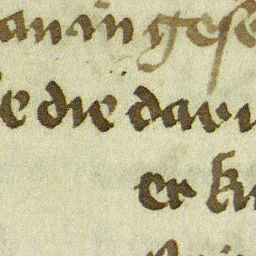 an in gese
e die daru
er ku